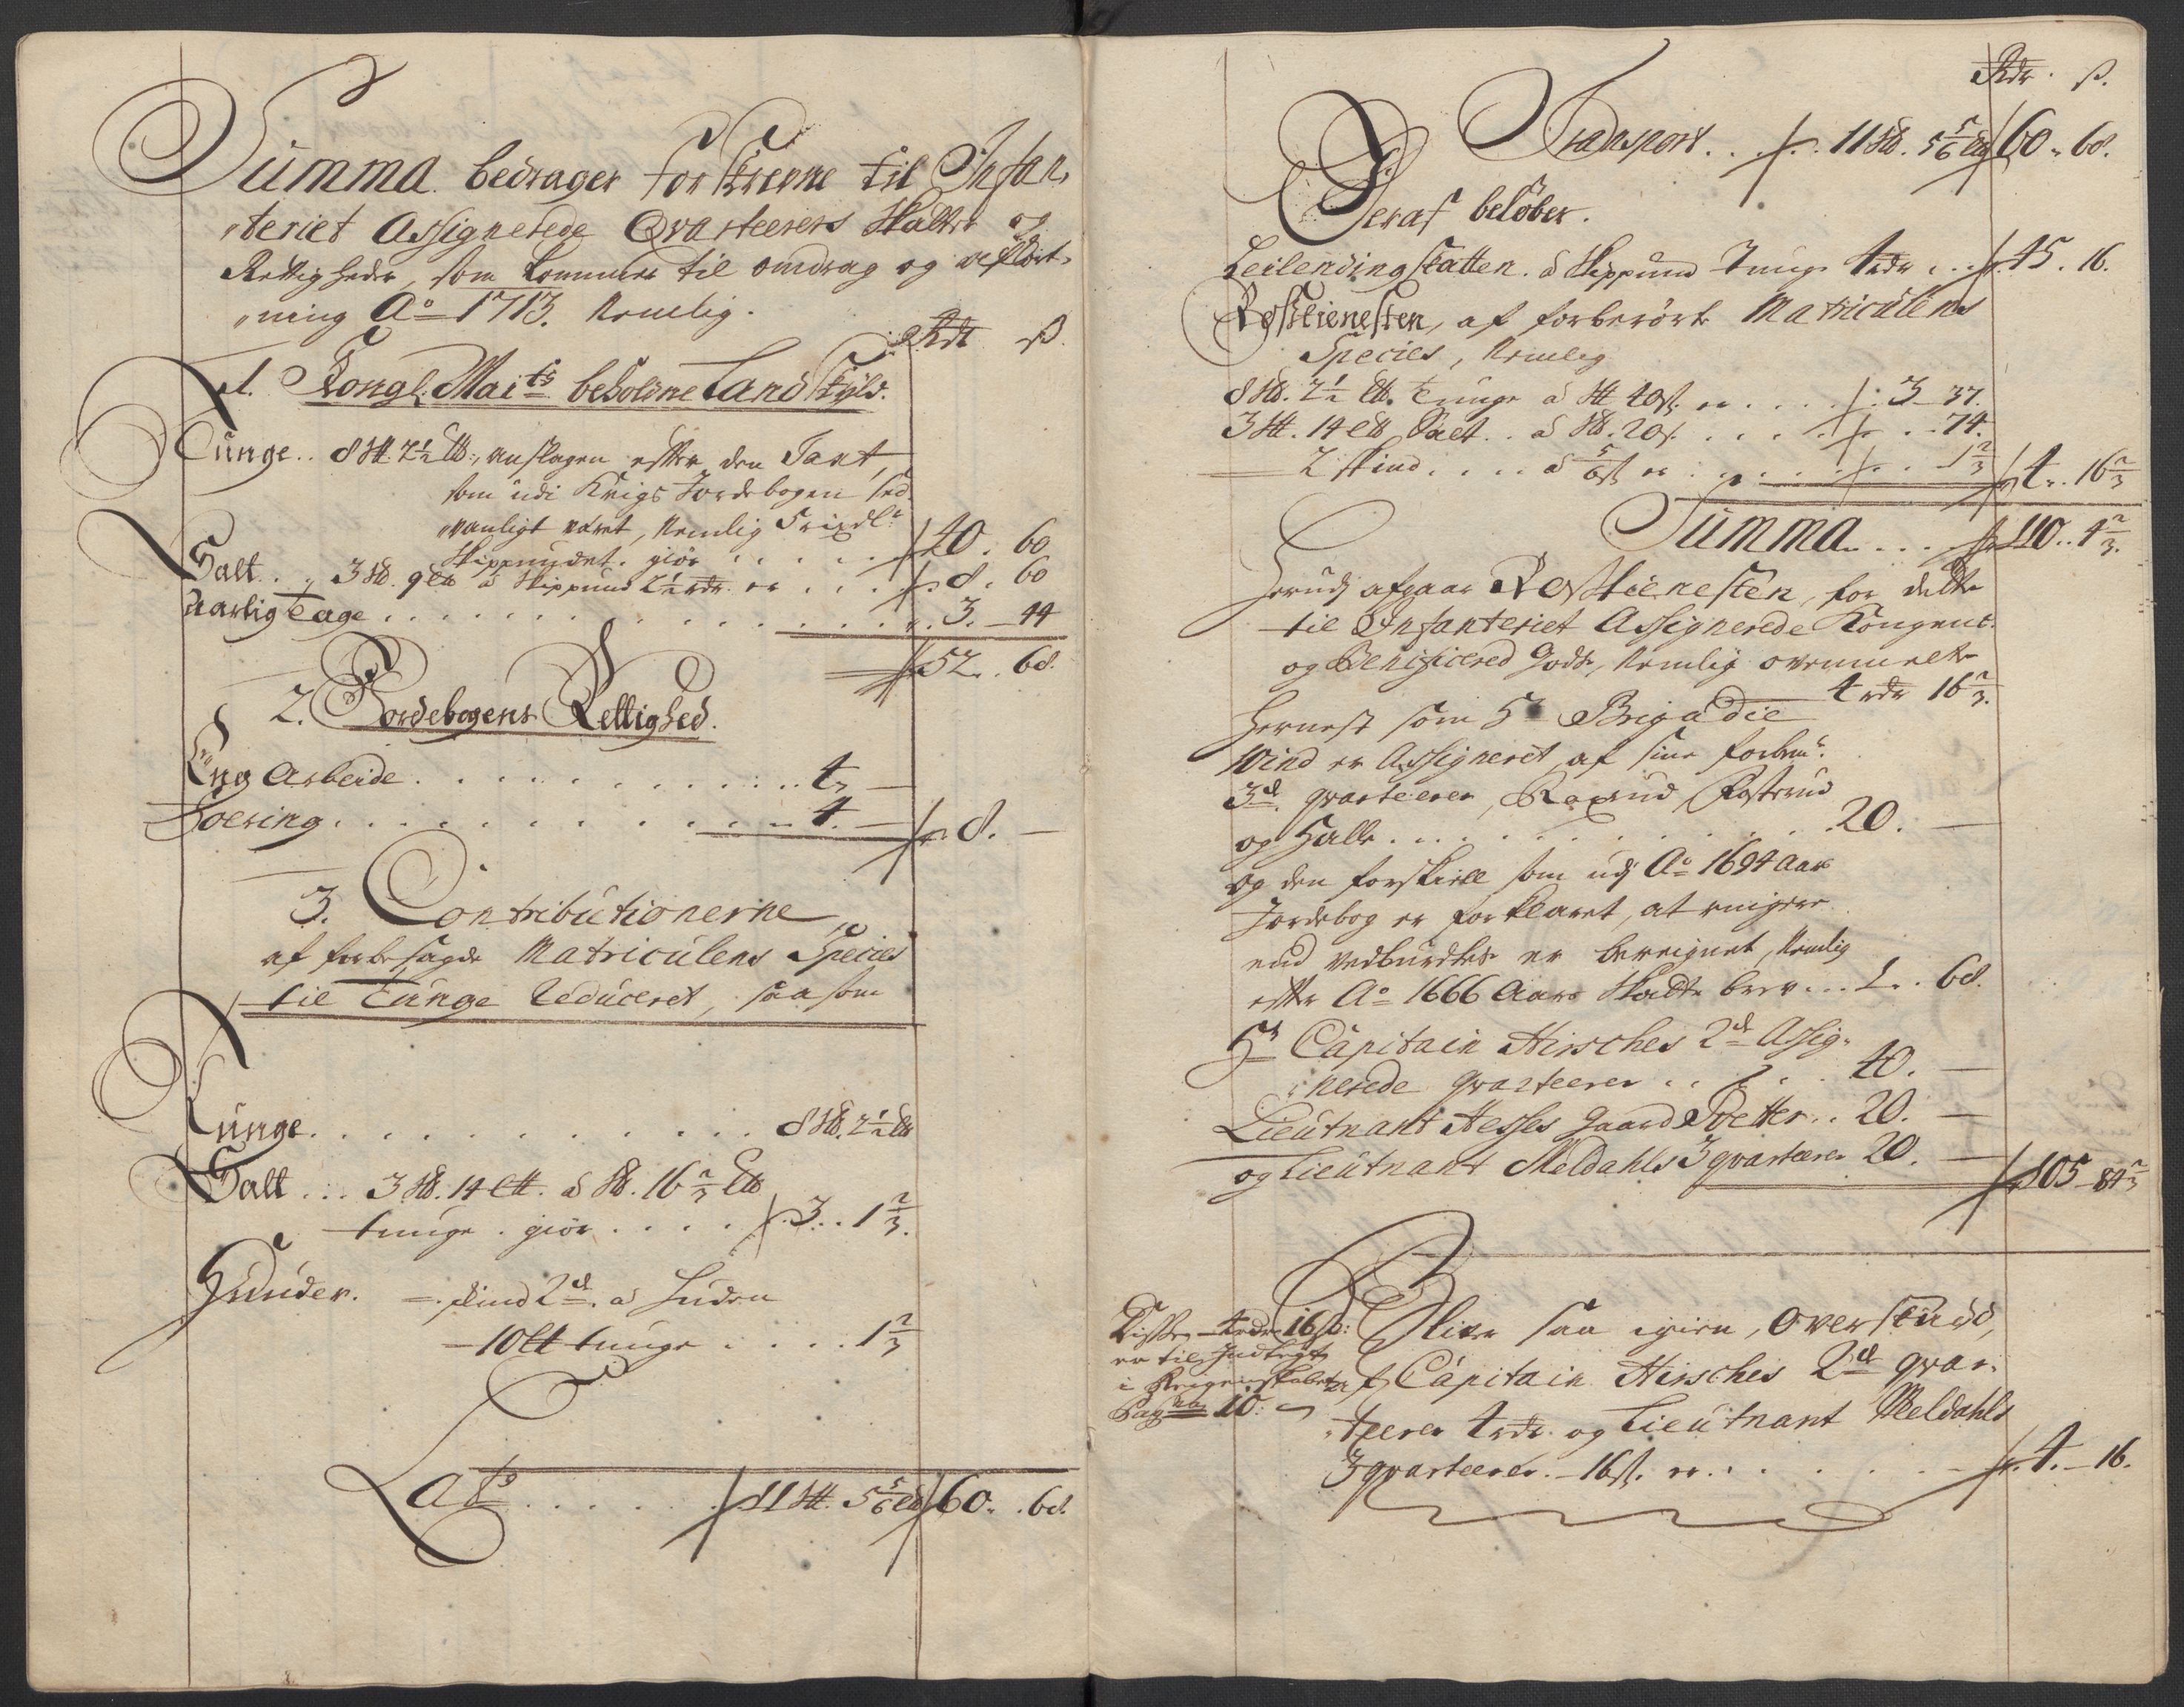 Summa bedrager forskrevne til Infan-
teriet Assignerede Qvarteerers Skatter og
Rettigheder, som kommer til omdrag og afkort-
ning Aº 1713. Nemlig.
Rdr ß.
1. Kongl. Maits beholdne Landskyld.
Tunge .. 8 ℔. 2½ L℔., anslagen efter den Taxt,
som udi Krigs Jordebogen sed-
vanligt været, Nemlig 5 rixdlr
Skippundet. giör . . . . 40. 60
Salt .. 3 ℔. 9 L℔ à Skippund 2½ rdr. er . . . 8. 60
Aarlig Tage . . . . . . . 3. 44
52. 68.
2. Jordebogens Rettighed.
Eng Arbeide . . . . . . . 4. —
Foering . . . . . . . 4. — 8. —
3. Contributionerne
af forbesagde Matriculens Species
til Tunge Reduceret, saasom
Tunge . . . . . . . 8 ℔. 2½ L℔
Salt . . . 3 ℔. 14 L℔. à ℔. 16⅔ L℔
tunge . giör . . . . 3. . 1⅔.
Huuder. — skind 2de. à Huden
— 10 L℔ tunge . . . . 1⅔
Lats . . . . . 11 ℔. 5⅚ L℔ 60. . 68.
Rdr. ß.
Transport . . . 11 ℔. 5⅚ L℔ 60. 68.
Heraf belöber.
Leilendingskatten. à Skippund Tunge 4 rdr . . . 45. 16.
Rostienesten, af forberörte Matriculens
Species, Nemlig
8 ℔. 2½ L℔. Tunge à ℔ 40 ß. er . . . . 3 — 37.
3 ℔. 14 L℔ Salt . . à ℔. 20 ß. . . . . . 74.
2 skind . . . . à ⅚ ß er . . . . . 1⅔ 4. . 16⅔
Summa . . . . 110. . 4⅔.
Herudj afgaar Rostienesten, for dette
til Infanteriet Assignerede Kongens
og Benificered Gods, Nemlig ovenmelte
4 rdr 16⅔.
Hernest som Hr Brigadie
Wind er Assigneret, af sine forbemte
3de. qvarteerer, Raxrud Rosterud
og Halle . . . . . . . 20. —
og den forskiel som udj Aº 1694 Aars
Jordebog er forklaret, at ringere
end vedburdte er beregnet, Nemlig
efter Aº 1666 Aars Skatte brev . . . 1. . 68.
Hr Capitain Hirsches 2de Assig-
nerede qvarteerer . . . . 40. —
Lieutnant Hesses Gaard Sletter . . 20. —
og Lieutnant Meldahls 3 qvarteerer 20. — 105 — 84⅔
Disse 4 rdr 16 ß:
er til Indtegt
i Regenskabet
Pag 10:
Bliver saa igien, Overskudd,
af Capitain Hirsches 2de qvar-
teerer 4 rdr. og Lieutnant Meldahls
3 qvarteerer. — 16 ß. er . . . . . 4. — 16.